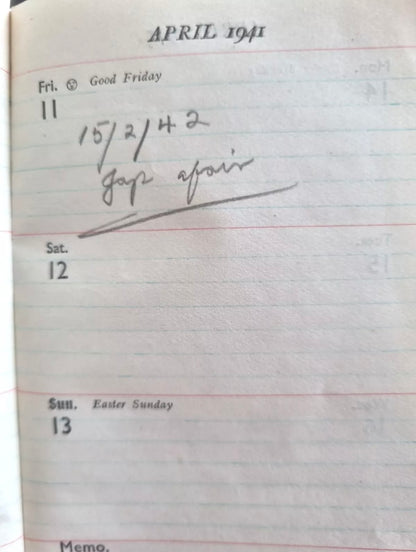 APRIL 1941
Fri. Good Friday
11
15/2/42
Jap afair
Sat.
12
Sun. Easter Sunday
13
Memo.